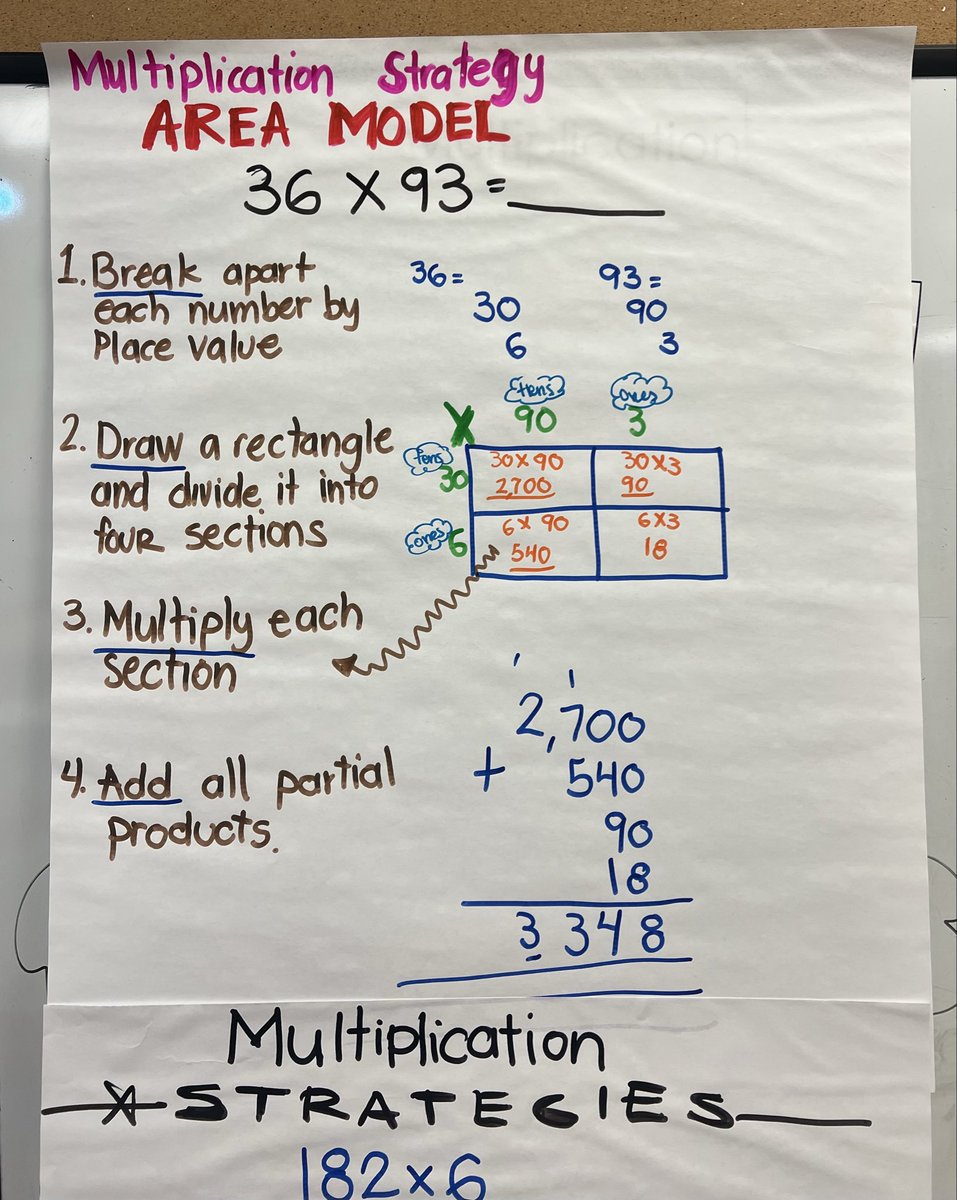 Multiplication Strategy
AREA MODEL
36 X 93 = ______
1. Break apart
each number by
Place value
36 =
30
6
93 =
90
3
2. Draw a rectangle
and divide it into
four sections
tens ones
X 90 3
tens
30
30 X 90 30 X 3
2,700 90
ones
6
6 X 90 6 X 3
540 18
3. Multiply each
section
4. Add all partial
products.
1 1
2,700
+ 540
90
18
3 348
Multiplication
STRATEGIES
182 x 6